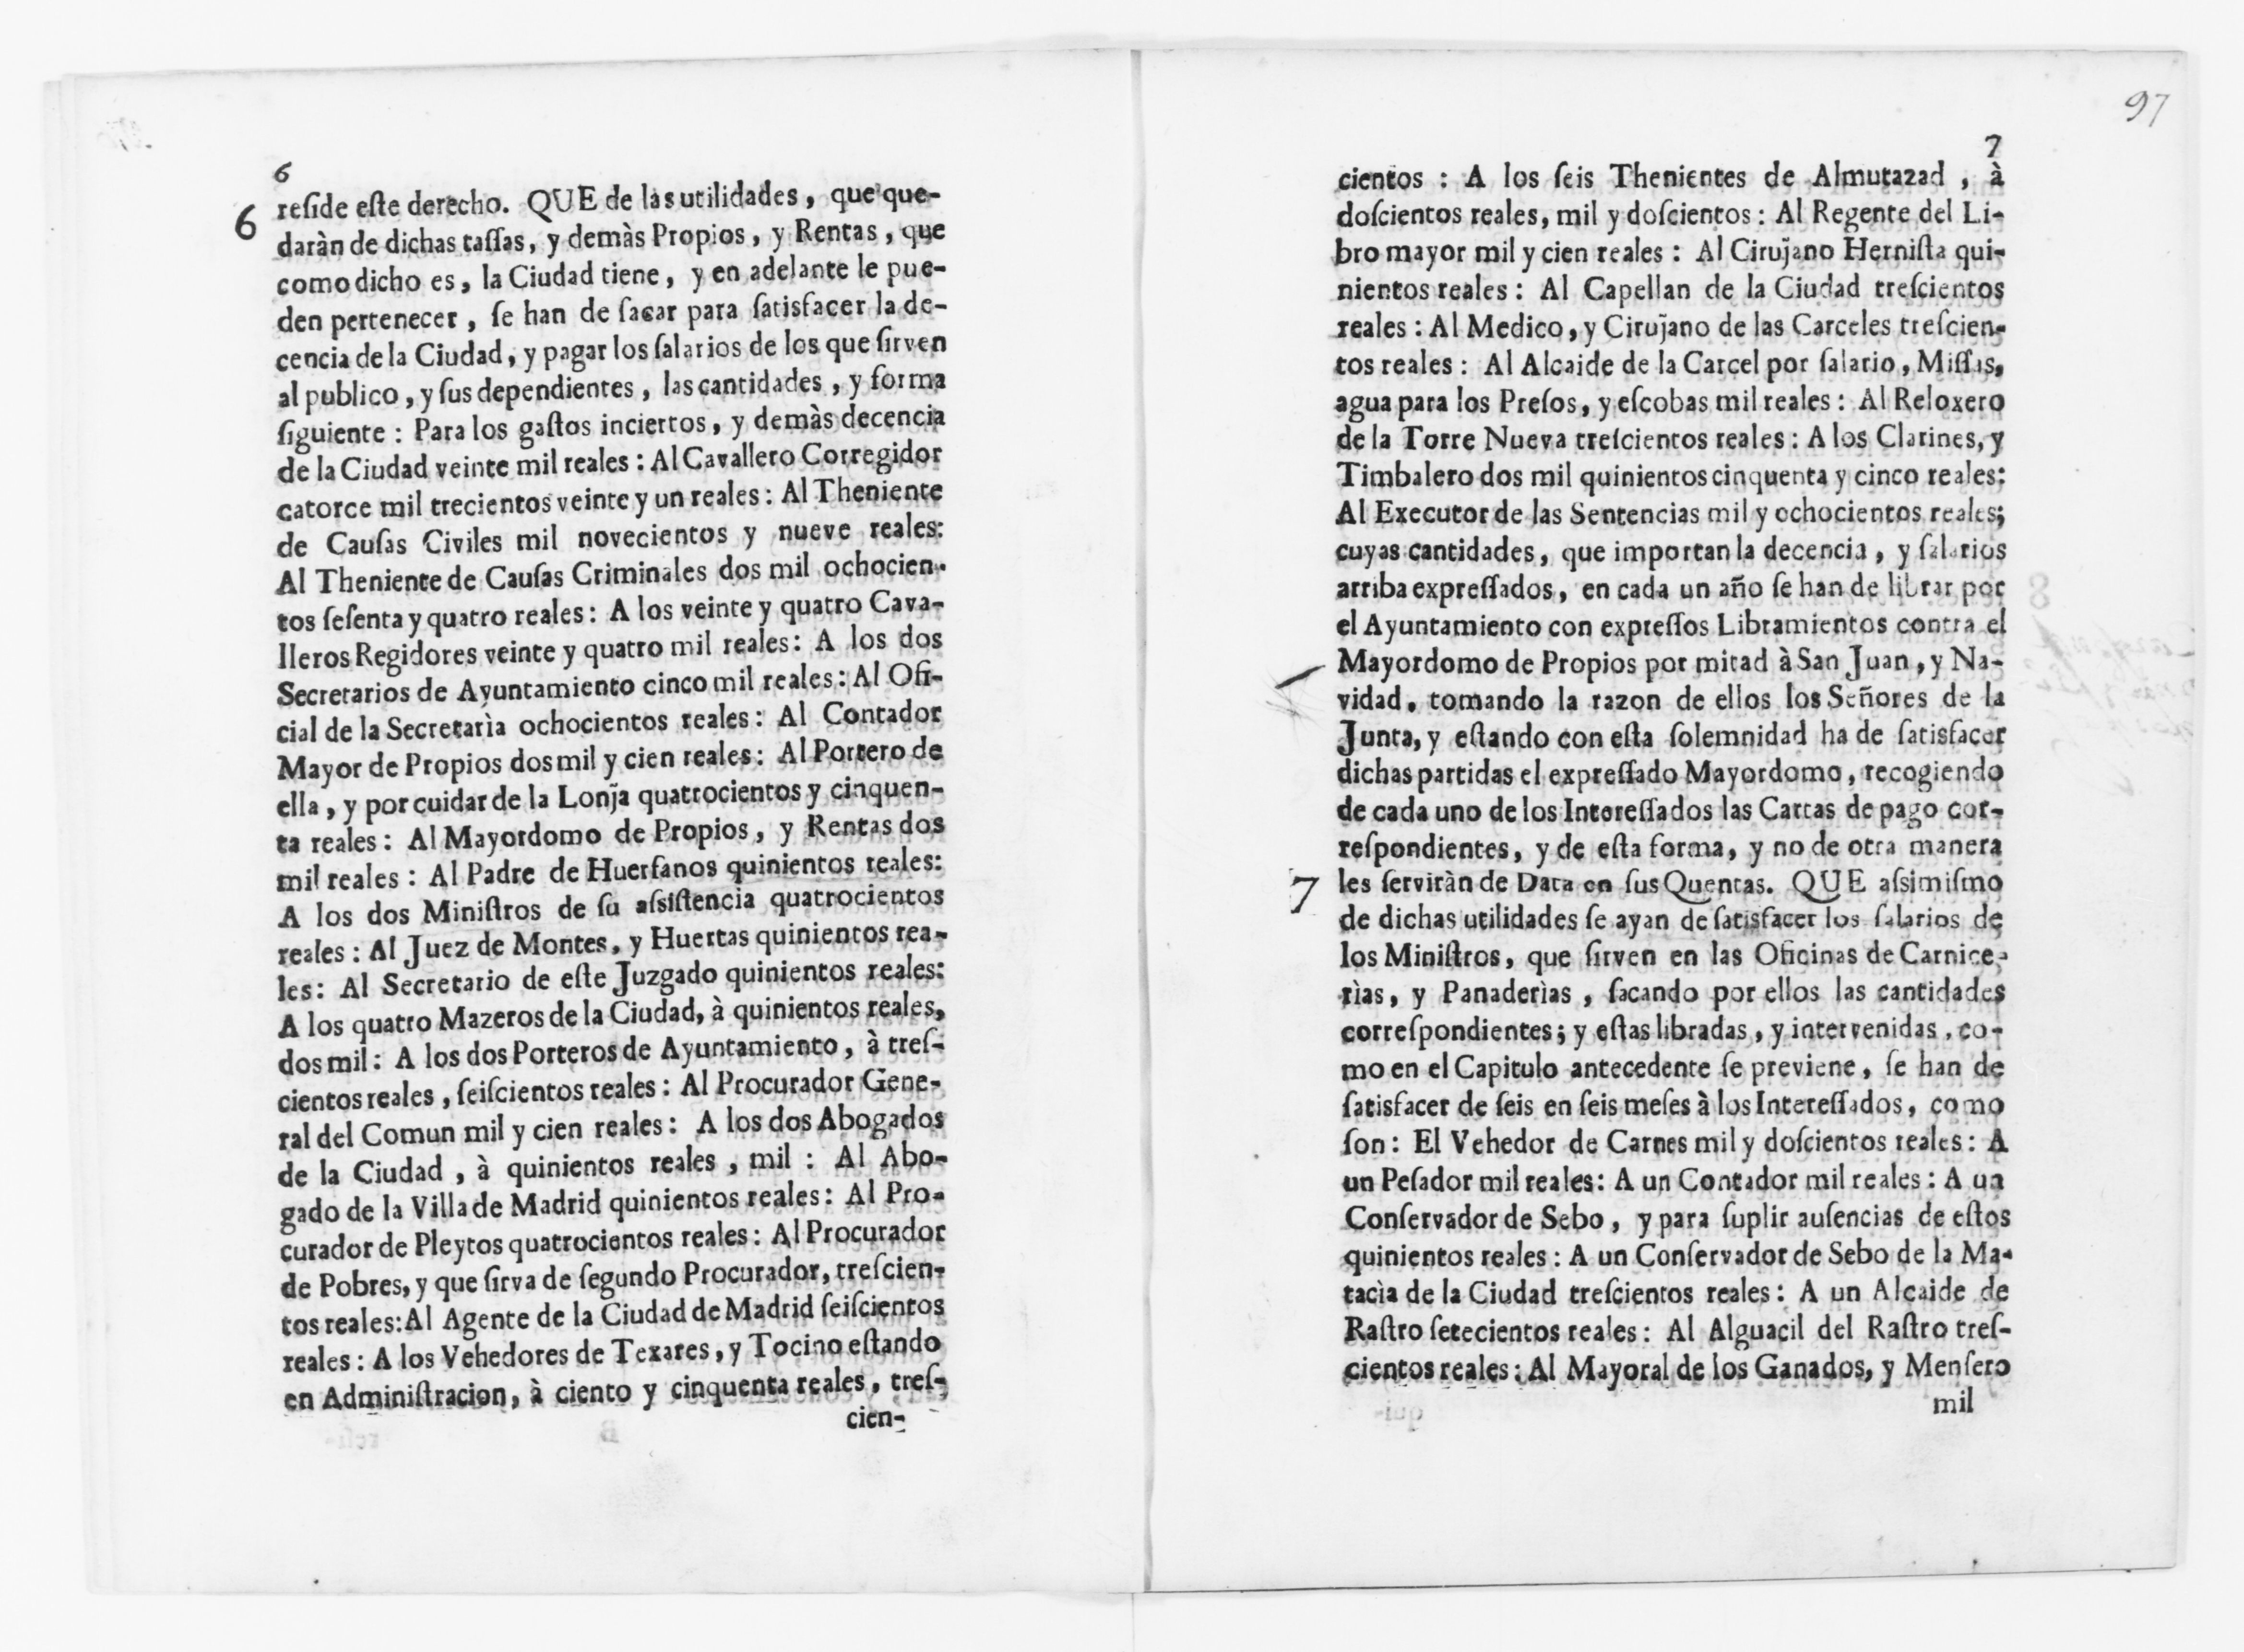 6
6 reſide eſte derecho. QUE de las utilidades, que que-
daràn de dichas taſſas, y demàs Propios, y Rentas, que
como dicho es, la Ciudad tiene, y en adelante le pue-
den pertenecer, ſe han de ſacar para ſatisfacer la de-
cencia de la Ciudad, y pagar los ſalarios de los que ſirven
al publico, y ſus dependientes, las cantidades, y forma
ſiguiente: Para los gaſtos inciertos, y demàs decencia
de la Ciudad veinte mil reales: Al Cavallero Corregidor
catorce mil trecientos veinte y un reales: Al Theniente
de Cauſas Civiles mil novecientos y nueve reales:
Al Theniente de Cauſas Criminales dos mil ochocien-
tos ſeſenta y quatro reales: A los veinte y quatro Cava-
lleros Regidores veinte y quatro mil reales: A los dos
Secretarios de Ayuntamiento cinco mil reales: Al Ofi-
cial de la Secretarìa ochocientos reales: Al Contador
Mayor de Propios dos mil y cien reales: Al Portero de
ella, y por cuidar de la Lonja quatrocientos y cinquen-
ta reales: Al Mayordomo de Propios, y Rentas dos
mil reales: Al Padre de Huerfanos quinientos reales:
A los dos Miniſtros de ſu aſsiſtencia quatrocientos
reales: Al Juez de Montes, y Huertas quinientos rea-
les: Al Secretario de eſte Juzgado quinientos reales:
A los quatro Mazeros de la Ciudad, à quinientos reales,
dos mil: A los dos Porteros de Ayuntamiento, à treſ-
cientos reales, ſeiſcientos reales: Al Procurador Gene-
ral del Comun mil y cien reales: A los dos Abogados
de la Ciudad, à quinientos reales, mil: Al Abo-
gado de la Villa de Madrid quinientos reales: Al Pro-
curador de Pleytos quatrocientos reales: Al Procurador
de Pobres, y que ſirva de ſegundo Procurador, treſcien-
tos reales: Al Agente de la Ciudad de Madrid ſeiſcientos
reales: A los Vehedores de Texares, y Tocino eſtando
en Adminiſtracion, à ciento y cinquenta reales, treſ-
cien-
97
7
cientos: A los ſeis Thenientes de Almutazad, à
doſcientos reales, mil y doſcientos: Al Regente del Li-
bro mayor mil y cien reales: Al Cirujano Herniſta qui-
nientos reales: Al Capellan de la Ciudad treſcientos
reales: Al Medico, y Cirujano de las Carceles treſcien-
tos reales: Al Alcaide de la Carcel por ſalario, Miſſas,
agua para los Preſos, y eſcobas mil reales: Al Reloxero
de la Torre Nueva treſcientos reales: A los Clarines, y
Timbalero dos mil quinientos cinquenta y cinco reales:
Al Executor de las Sentencias mil y ochocientos reales;
cuyas cantidades, que importan la decencia, y ſalarios
arriba expreſſados, en cada un año ſe han de librar por
el Ayuntamiento con expreſſos Libramientos contra el
Mayordomo de Propios por mitad à San Juan, y Na-
vidad, tomando la razon de ellos los Señores de la
Junta, y eſtando con eſta ſolemnidad ha de ſatisfacer
dichas partidas el expreſſado Mayordomo, recogiendo
de cada uno de los Intereſſados las Cartas de pago cor-
reſpondientes, y de eſta forma, y no de otra manera
7 les ſerviràn de Data en ſus Quentas. QUE aſsimiſmo
de dichas utilidades ſe ayan de ſatisfacer los ſalarios de
los Miniſtros, que ſirven en las Oficinas de Carnice-
rìas, y Panaderìas, ſacando por ellos las cantidades
correſpondientes; y eſtas libradas, y intervenidas, co-
mo en el Capitulo antecedente ſe previene, ſe han de
ſatisfacer de ſeis en ſeis meſes à los Intereſſados, como
ſon: El Vehedor de Carnes mil y doſcientos reales: A
un Peſador mil reales: A un Contador mil reales: A un
Conſervador de Sebo, y para ſuplir auſencias de eſtos
quinientos reales: A un Conſervador de Sebo de la Ma-
tacìa de la Ciudad treſcientos reales: A un Alcaide de
Raſtro ſetecientos reales: Al Alguacil del Raſtro treſ-
cientos reales: Al Mayoral de los Ganados, y Menſero
mil